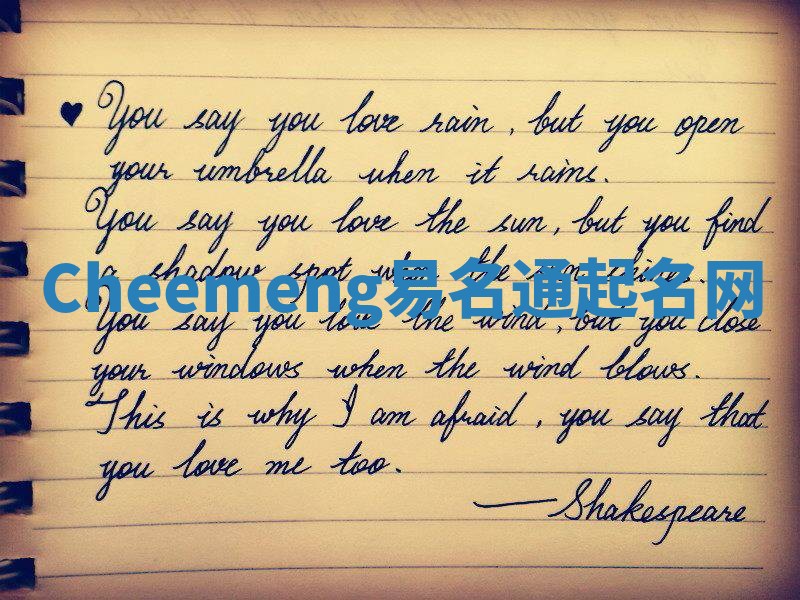 ♥ You say you love rain, but you open
your umbrella when it rains.
You say you love the sun, but you find
a shadow spot when the sun shines.
Cheemeng易名通起名网
You say you love the wind, but you close
your windows when the wind blows.
This is why I am afraid, you say that
you love me too.
— Shakespeare